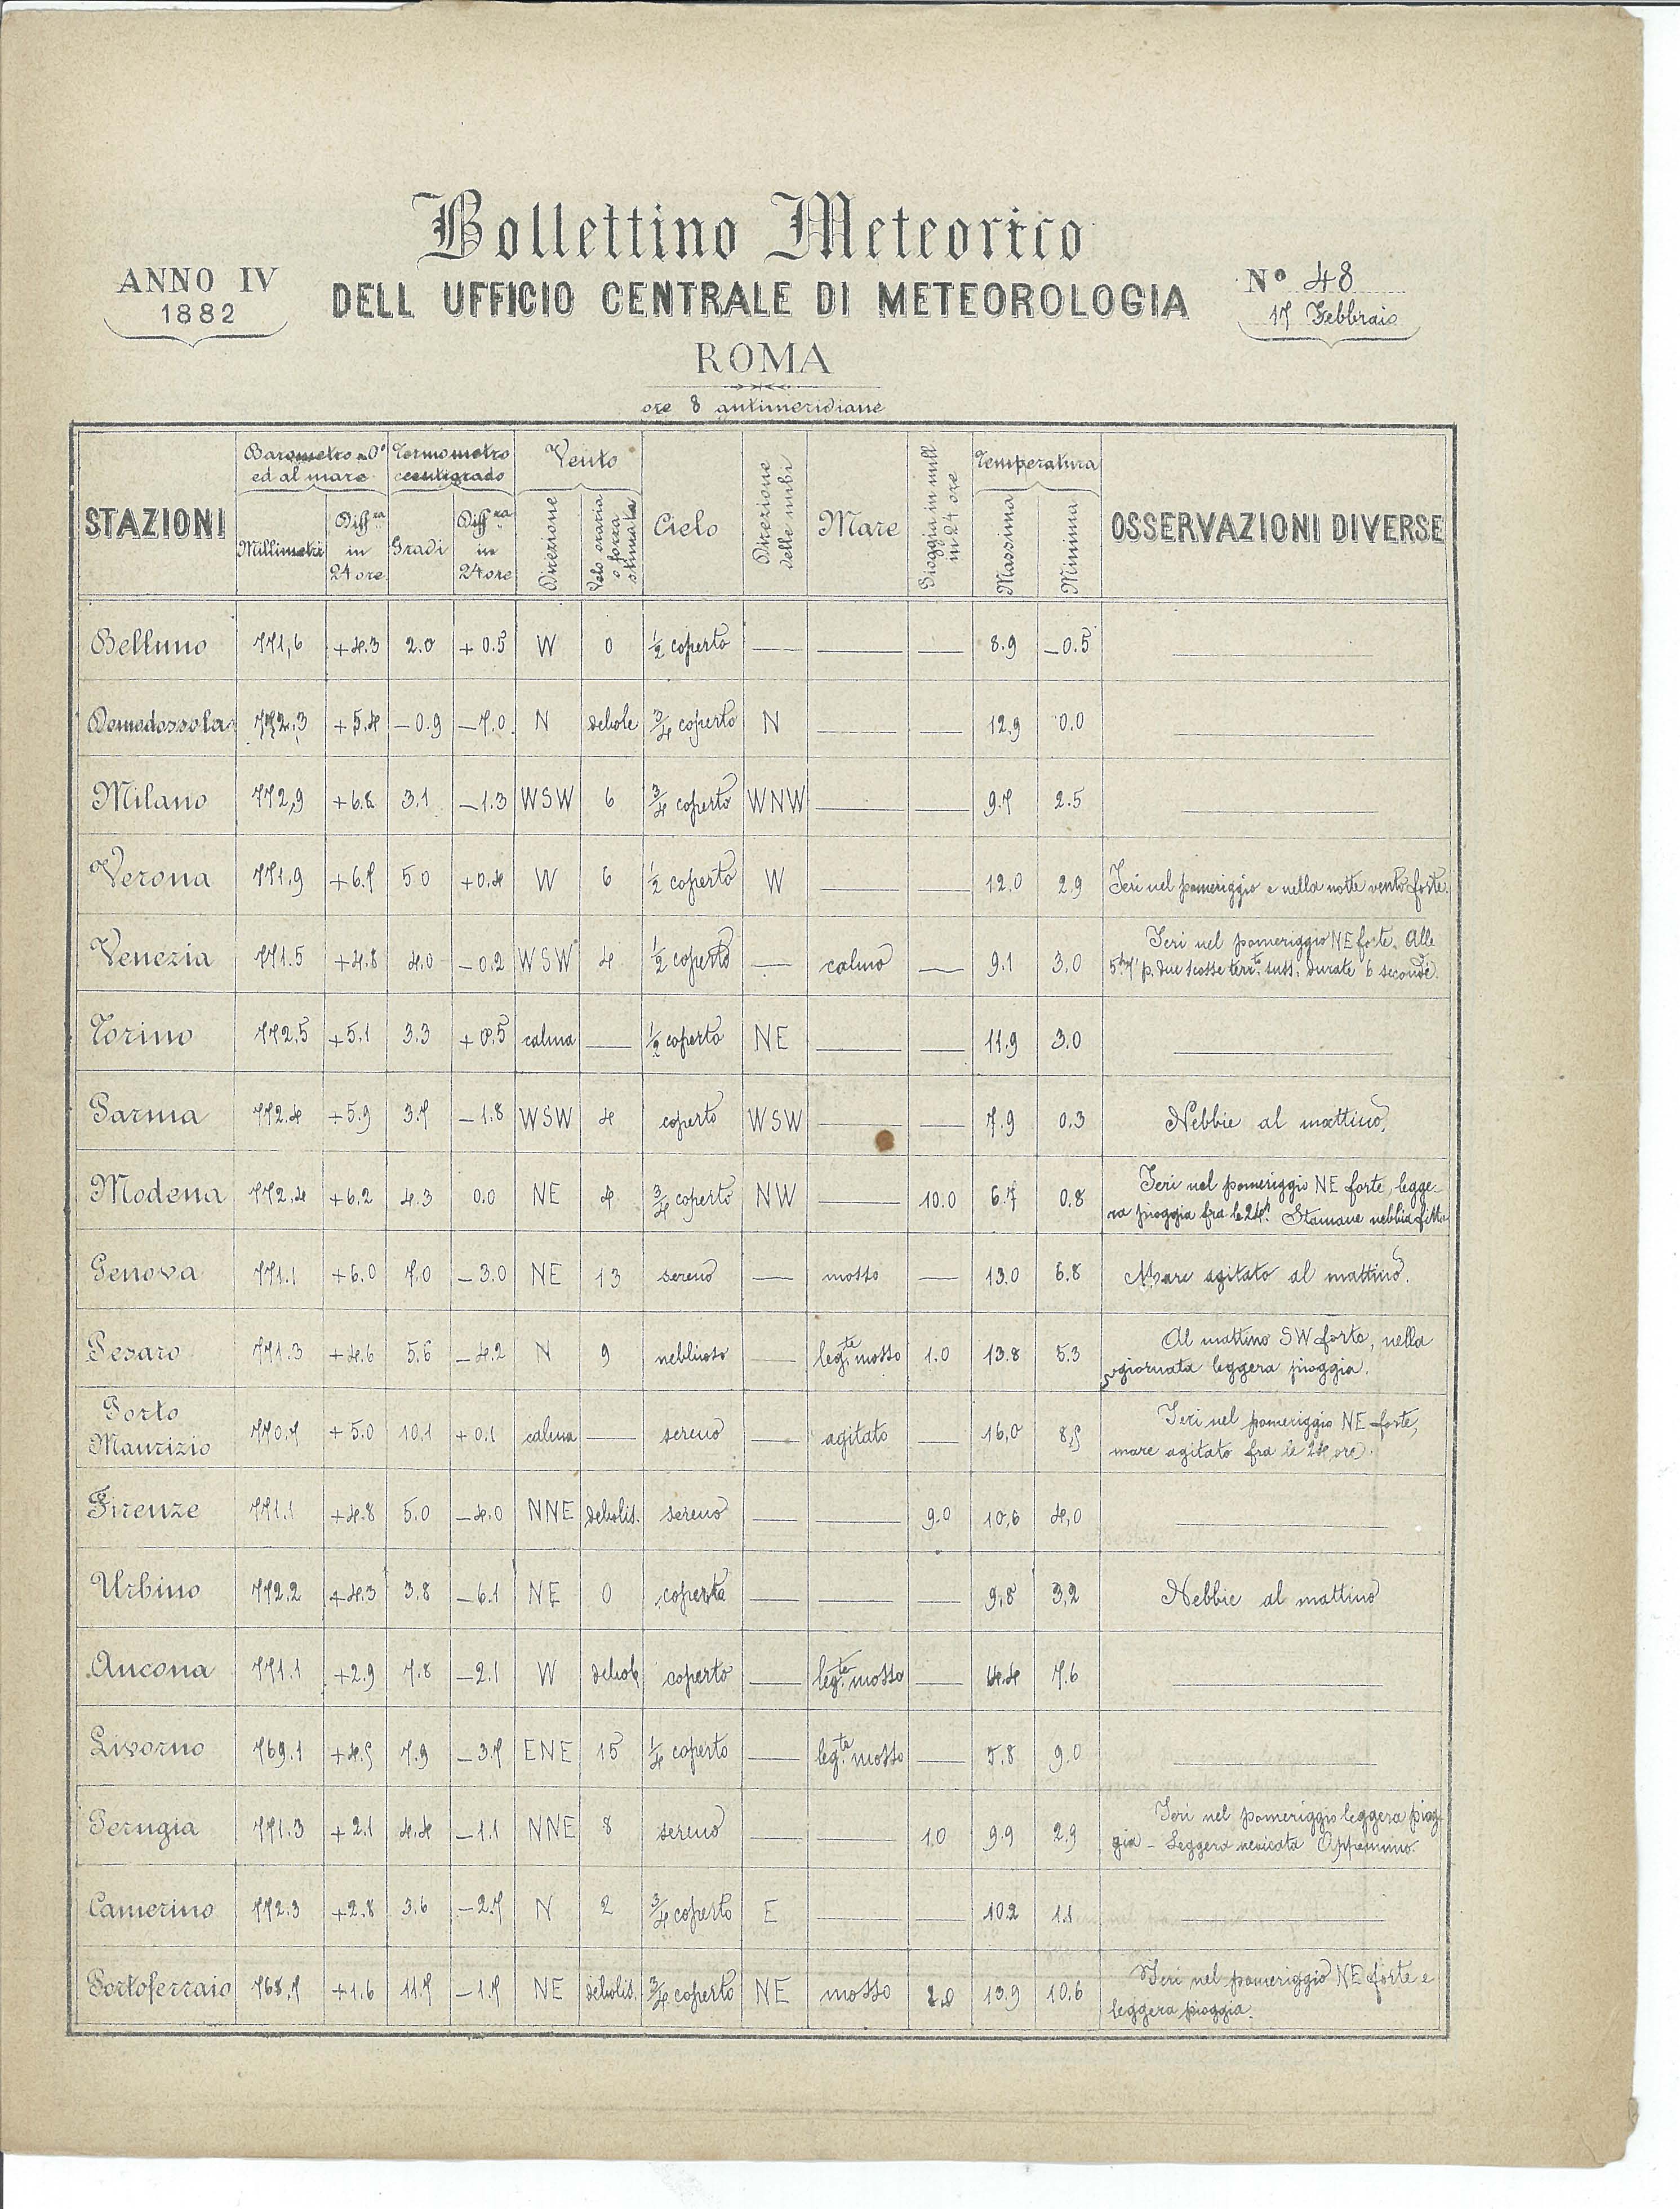 Bollettino Meteorico
ANNO IV
1882
DELL UFFICIO CENTRALE DI METEOROLOGIA
Nº 48
17 Febbraio
ROMA
ore 8 antimeridiane
STAZIONI | Barometro a 0° ed al mare | Termometro centigrado | Vento | Cielo | Direzione delle nubi | Mare | Pioggia in mill in 24 ore | Temperatura | OSSERVAZIONI DIVERSE
Millimetri | Diff.ra in 24 ore | Gradi | Diff.ra in 24 ore | Direzione | Velo oraria o forza stimata | Massima | Minima
Belluno 771,6 +4.3 2.0 +0.5 W 0 ½ coperto — — — 8.9 -0.5 —
Domodossola 772.3 +5.4 -0.9 -7.0 N debole ¾ coperto N — — 12.9 0.0 —
Milano 772,9 +6.8 3.1 -1.3 WSW 6 ¾ coperto WNW — — 9.7 2.5 —
Verona 771.9 +6.7 5 0 +0.4 W 6 ½ coperto W — — 12.0 2.9 Ieri nel pomeriggio e nella notte vento forte.
Venezia 771.5 +4.8 4.0 -0.2 WSW 4 ½ coperto — calmo — 9.1 3.0 Ieri nel pomeriggio NE forte. Alle
5h 7' p. due scosse terrte suss: durate 6 secondi.
Torino 772.5 +5.1 3.3 +0.5 calma — ½ coperto NE — — 11.9 3.0 —
Parma 772.4 +5.9 3.7 -1.8 WSW 4 coperto WSW — — 7.9 0.3 Nebbie al mattino.
Modena 772.4 +6.2 4.3 0.0 NE 4 ¾ coperto NW — 10.0 6.7 0.8 Ieri nel pomeriggio NE forte, legge-
ra pioggia fra le 24h. Stamane nebbia fitta
Genova 771.1 +6.0 7.0 -3.0 NE 13 sereno — mosso — 13.0 6.8 Mare agitato al mattino.
Pesaro 771.3 +4.6 5.6 -4.2 N 9 nebbioso — legte. mosso 1.0 13.8 5.3 Al mattino SW forte, nella
giornata leggera pioggia.
Porto
Maurizio 770.7 +5.0 10.1 +0.1 calma — sereno — agitato — 16,0 Ieri nel pomeriggio NE forte,
mare agitato fra le 24 ore.
Firenze 771.1 +4.8 5.0 -4.0 NNE debolis. sereno — — 9.0 10,6 4,0 —
Urbino 772.2 +4.3 3.8 -6.1 NE 0 coperto — — — 9.8 3,2 Nebbie al mattino
Ancona 771.1 +2.9 7.8 -2.1 W debole coperto — legte. mosso — 7.6 —
Livorno 769.1 7.9 -3.7 ENE 15 ¼ coperto — legte. mosso — 9.0 —
Perugia 771.3 +2.1 4.4 -1.1 NNE 8 sereno — — 1.0 9.9 2.9 Ieri nel pomeriggio leggera piog-
gia - Leggera nevicata Appennino.
Camerino 772.3 +2.8 3.6 -2.7 N 2 ¾ coperto E — — 10.2 1.1 —
Portoferraio 768.7 +1.6 11.7 -1.7 NE debolis. ¾ coperto NE mosso 2.0 13.9 10.6 Ieri nel pomeriggio NE forte e
leggera pioggia.